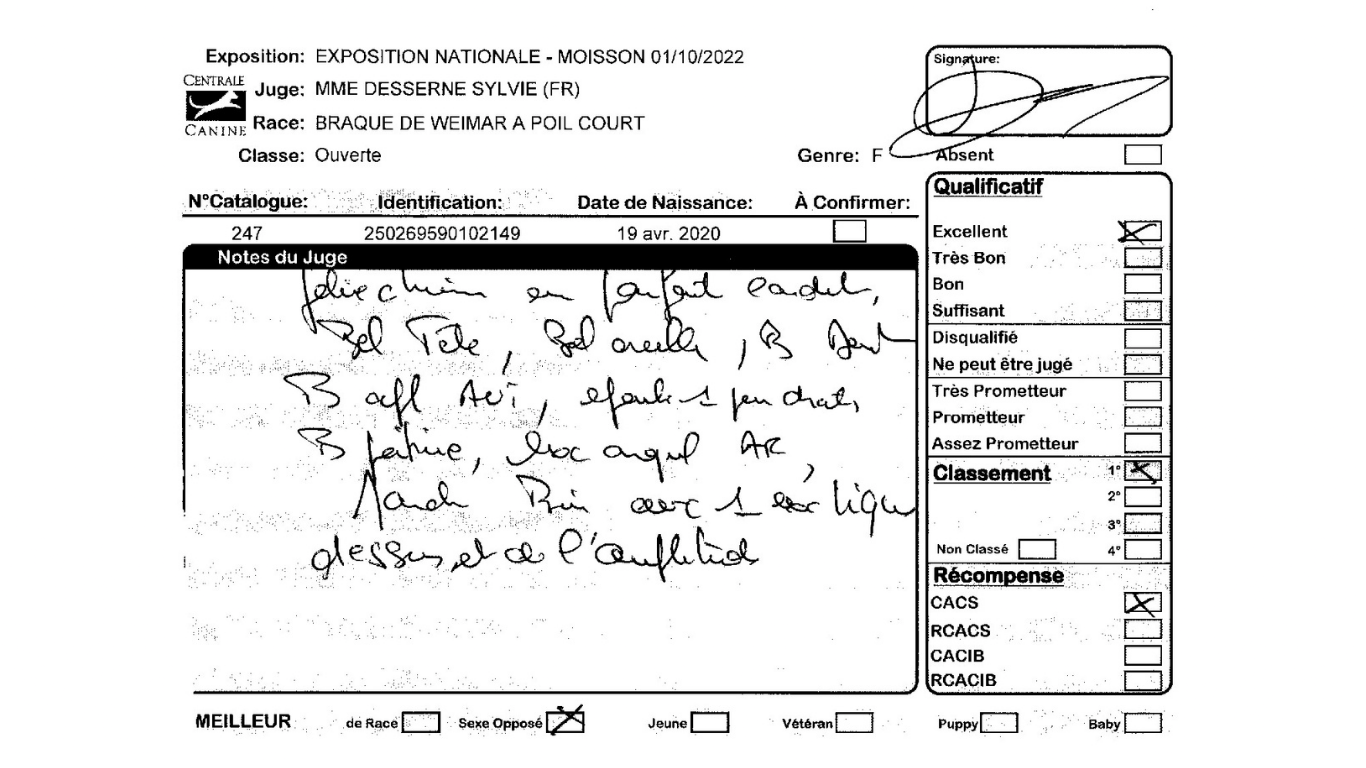 Exposition: EXPOSITION NATIONALE - MOISSON 01/10/2022
CENTRALE CANINE
Juge: MME DESSERNE SYLVIE (FR)
Race: BRAQUE DE WEIMAR A POIL COURT
Classe: Ouverte
Genre: F
Signature:
Absent
N°Catalogue: Identification: Date de Naissance: À Confirmer:
247 250269590102149 19 avr. 2020
Notes du Juge
en parfait
Bel Tete, Bel oreille, B Dent
B apl AVT, epaule 1 peu droite,
B poitrine, exc angul AR,
March Bien avec 1 exc ligne
dessus, et de l'amplitude
Qualificatif
Excellent
Très Bon
Bon
Suffisant
Disqualifié
Ne peut être jugé
Très Prometteur
Prometteur
Assez Prometteur
Classement 1°
2°
3°
Non Classé 4°
Récompense
CACS
RCACS
CACIB
RCACIB
MEILLEUR de Race Sexe Opposé Jeune Vétéran Puppy Baby